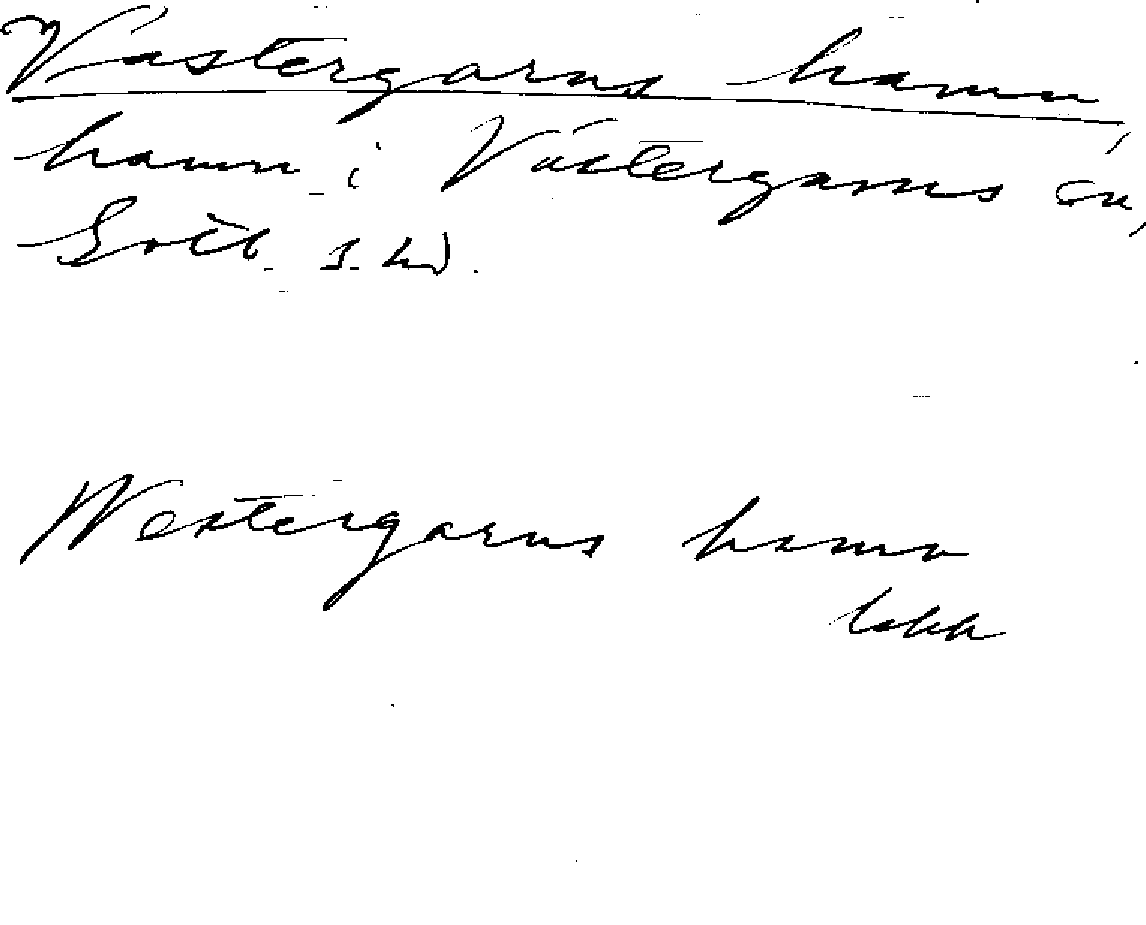 Västergarns hamn,
hamn i Västergarns sn,
Gotl. s. hd.
Westergarns hamn